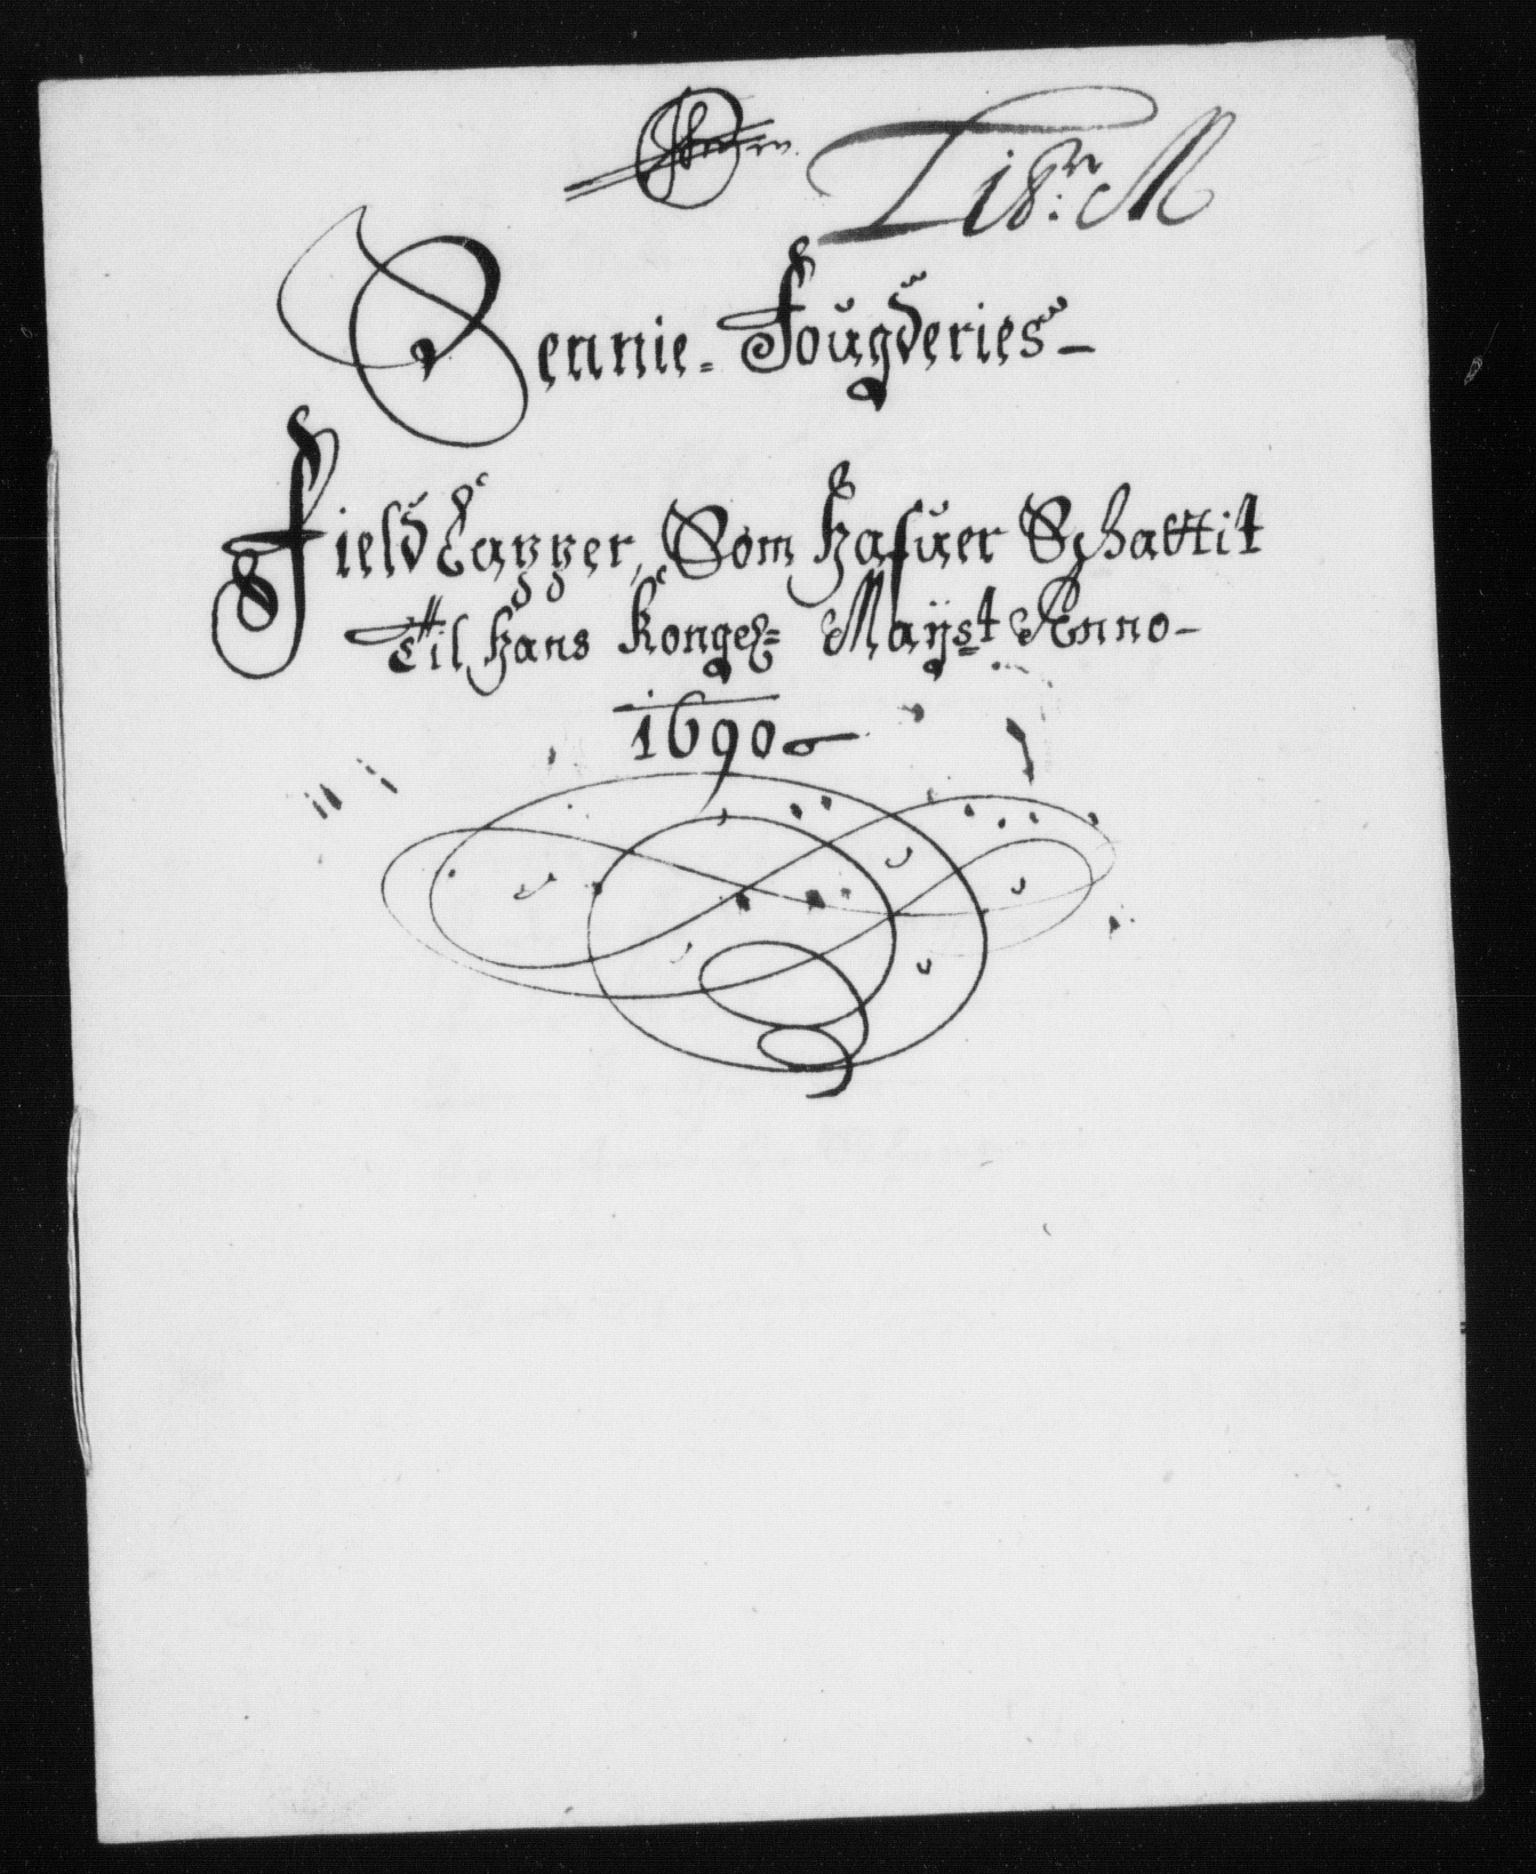 Litr: M
Sennie- Foügderies-
Field Lapper, Som Hafuer Schattit
Til Hans Kongel= Mayst Anno-
1690